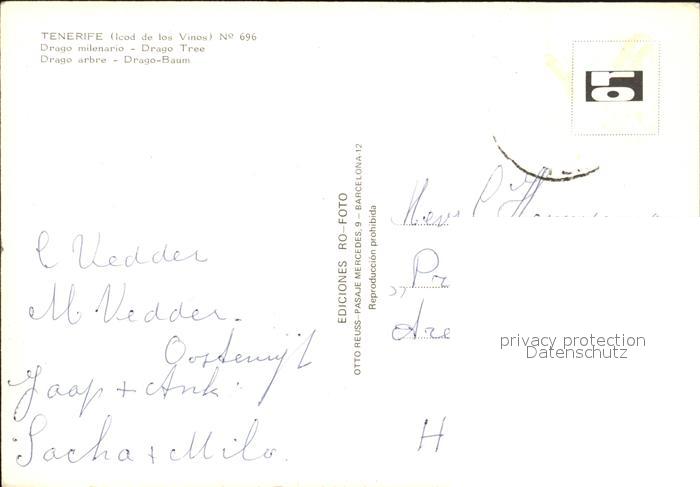 TENERIFE (Icod de los Vinos) Nº 696
Drago milenario - Drago Tree
Drago arbre - Drago-Baum
ro
EDICIONES RO-FOTO
OTTO REUSS-PASAJE MERCEDES, 9 - BARCELONA-12
Reproducción prohibida
L Vedder
M. Vedder.
Oosterwijk
Jaap + Ank.
Sacha + Milo.
Pr
H
privacy protection
Datenschutz